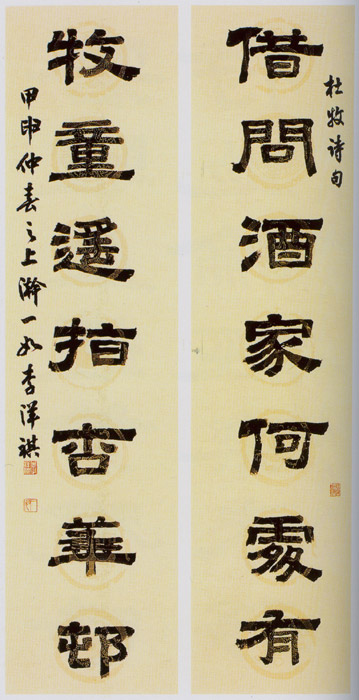 杜牧诗句
借問酒家何處有
牧童遙指杏華邨
甲申仲春之上澣一如李洋祺